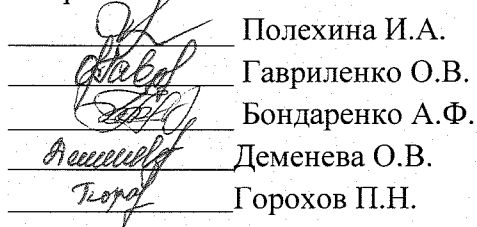 Полехина И.А.
Гавриленко О.В.
Бондаренко А.Ф.
Деменева О.В.
Горохов П.Н.